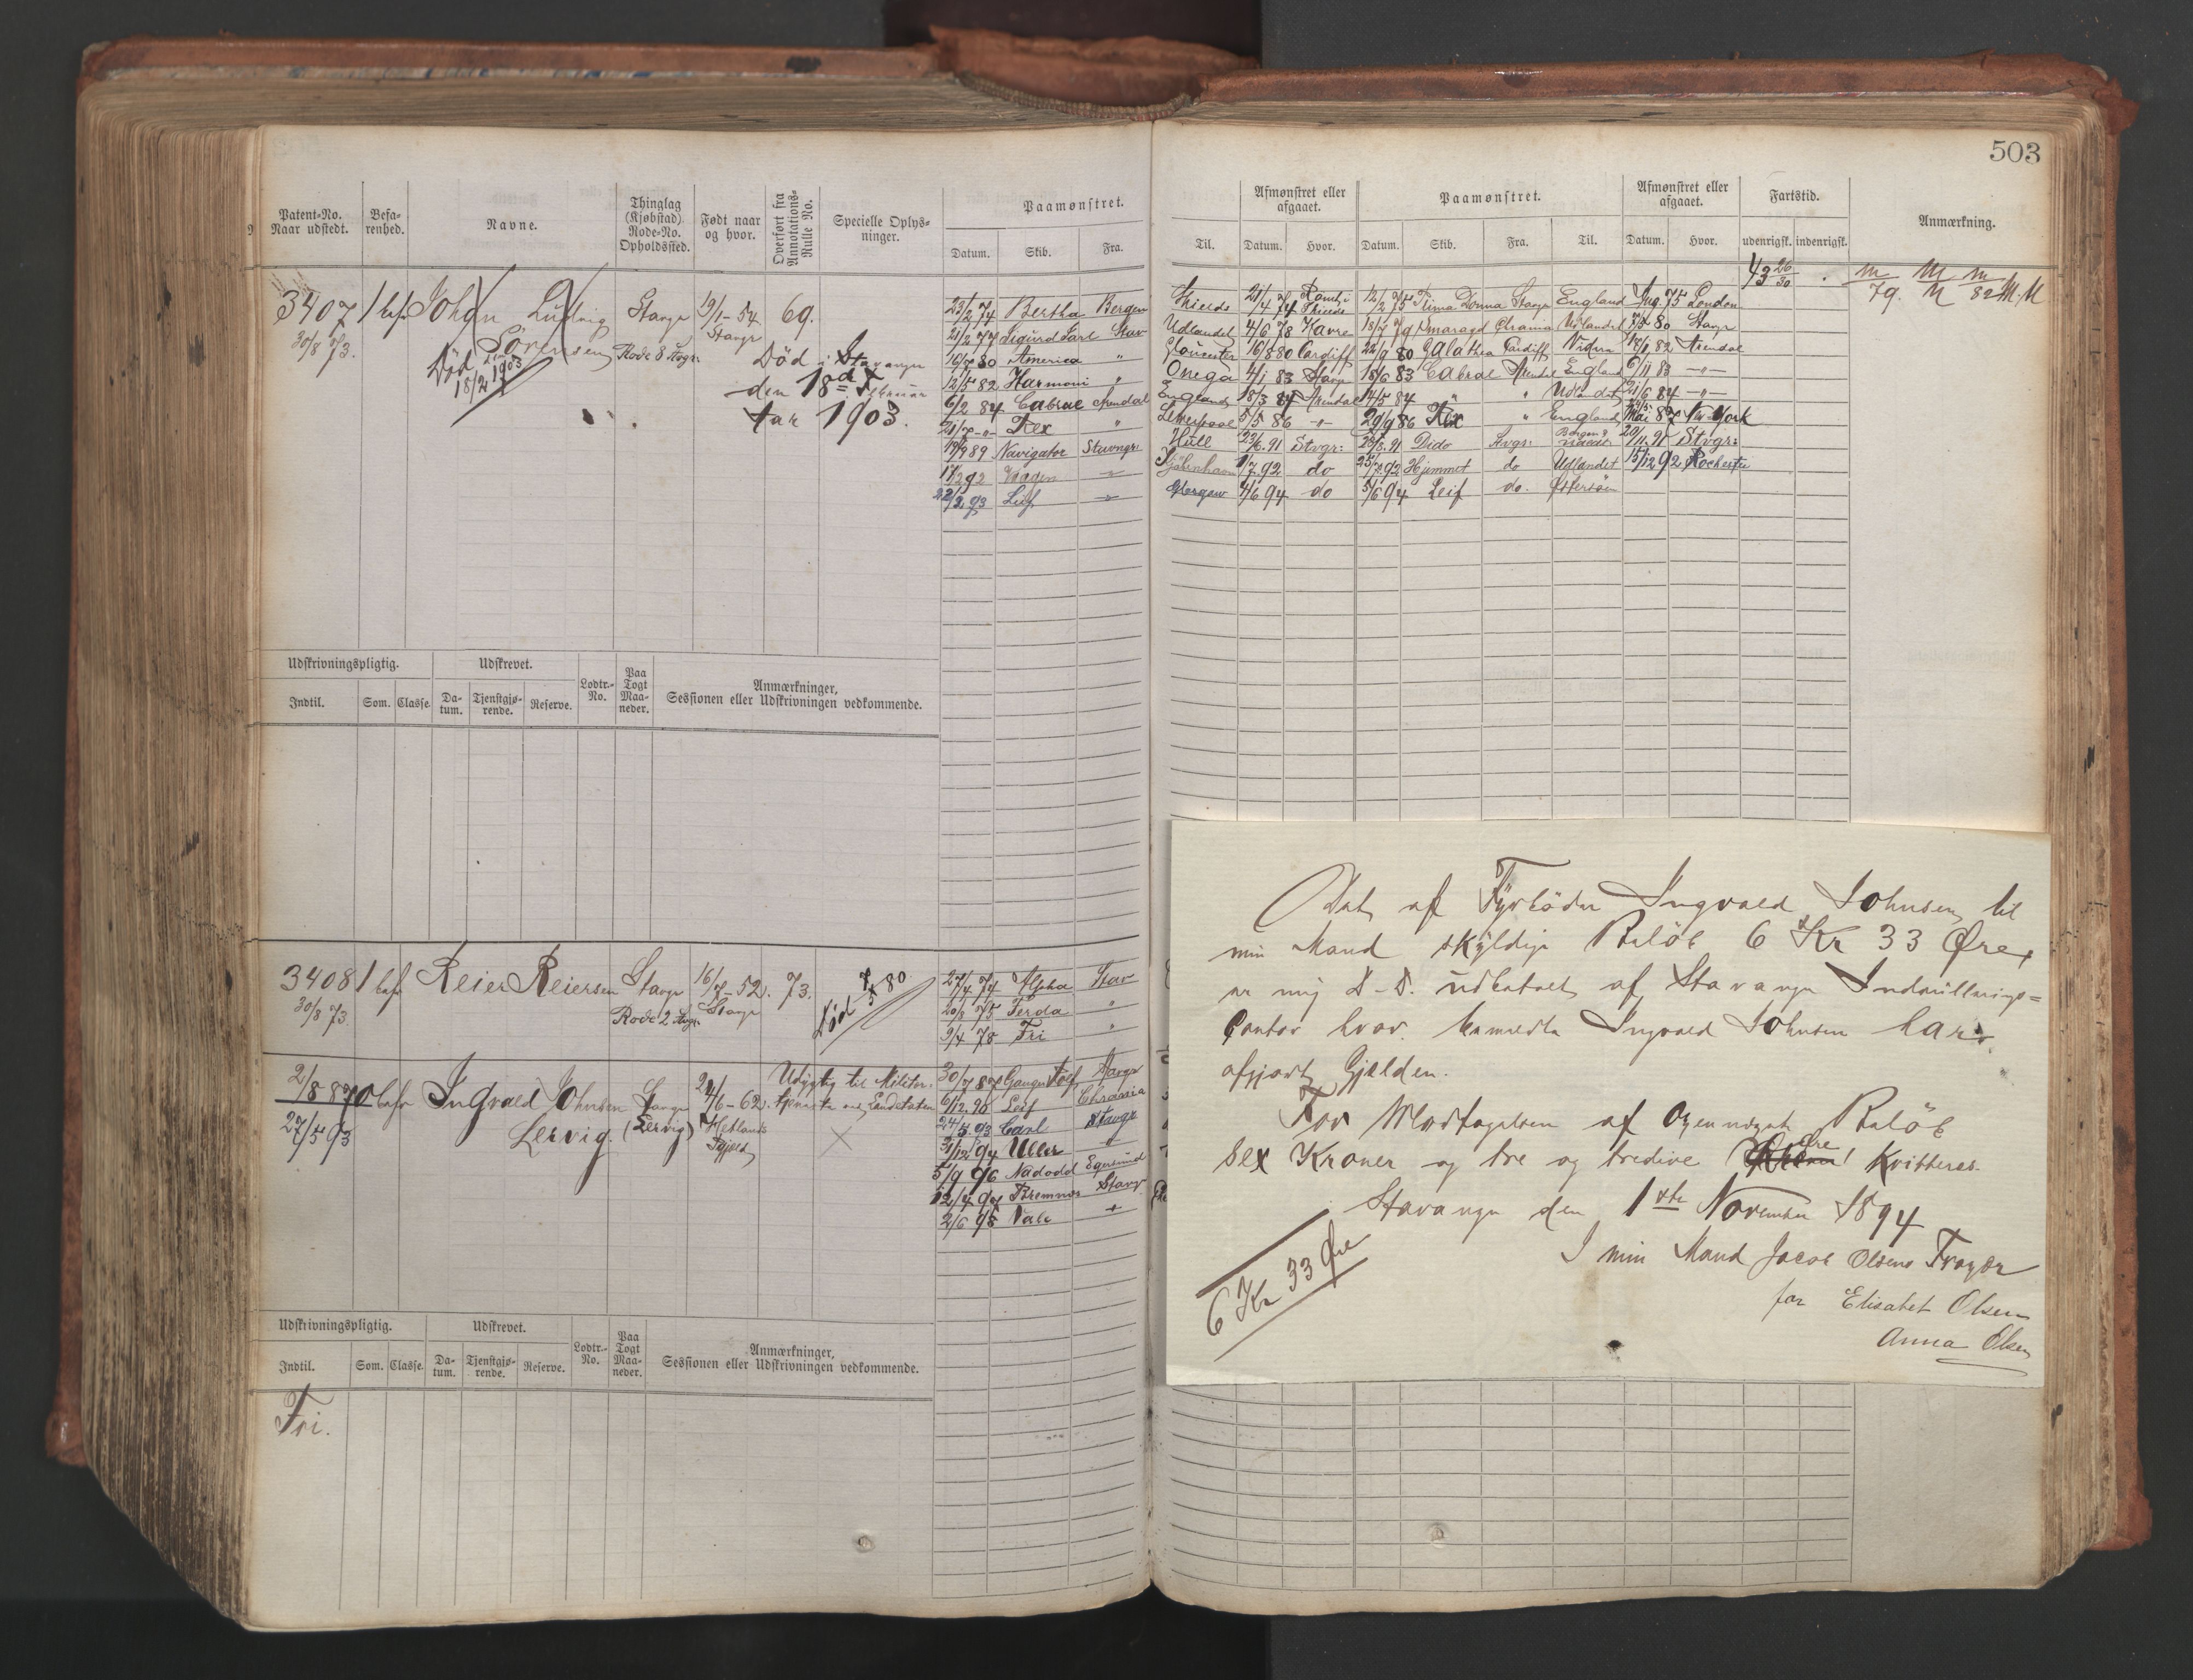 503
Patent-No. Naar udstedt.
Befarenhed.
Navne.
Thinglag (Kjøbstad) Rode-No. Opholdssted.
Født naar og hvor.
Overført fra Annotations-Rulle No.
Specielle Oplysninger.
Paamønstret.
Datum. Skib. Fra.
Til.
Afmønstret eller afgaaet.
Datum. Hvor.
Paamønstret.
Datum. Skib. Fra. Til.
Afmønstret eller afgaaet.
Datum. Hvor.
Fartstid.
udenrigsk. indenrigsk.
Anmærkning.
3407 1 bef. Johan Ludvig Stavgr 19/1-54 69.
30/8 73. Sørensen Rode 8 Stvgr: Stavgr
Død 18/2 1903
Død i Stavanger
den 18de Februar
Aar 1903.
23/2 74 Bertha Bergen
21/2 77 Sigurd Jarl Stav
America "
12/5 82 Harmoni "
6/2 84 Cabral Arendal
Rex "
Navigator Stavngr:
Leif
Shields 21/4 74 Shields 12/2 75 Prima Donna Stavgr England Aug. 75 London
Udlandet 4/6 78 Havre 18/7 79 Smaragd Chrania Udlandet 80 Stavgr
Gloucester 16/8 80 Cardiff 22/9 80 Galathea Cardiff 82 Arendal
Onega 4/1 83 Stavgr 18/6 83 Cabral Arendal England 6/11 83 -"-
England 18/3 84 Arendal 14/5 84 " " 21/6 84 -"-
Liverpool 5/5 86 -"- 29/9 86 Rex " England Mai 87 N. York
Hull 23/6. 91 Stvgr: Dido Stvgr: 20/11. 91 Stvgr:
Kjøbenhavn 1/7. 92 do 25/7. 92 Hummet do Udlandet 15/12 92 Rochester
Glasgow 4/6 94 do 5/6 94 Leif do. Østersøen
43 26/30
79. 82 M. M
Udskrivningspligtig.
Udskrevet.
Indtil. Som. Classe. Datum. Tjenstgjørende. Reserve.
Lodtr.-No.
Paa Togt Maaneder.
Anmærkninger,
Sessionen eller Udskrivningen vedkommende.
3408 1 bef. Reier Reiersen Stavgr 16/7-52. 73.
30/8 73. Rode 2 Stvgr. Stavgr
Død 7/5 80
27/4 74 Alpha Stav
75 Ferda "
9/4 78 Fri "
2/8 87 0 befr Ingvald Johnsen Stavgr 24/6-62.
27/5 93 Lervig. (Lervig) Hetlands Pgjeld
Udygtig til Militær.
30/7 87 Ganger Rolf Stavgr
6/12. 90 Leif Chrania
24/5 93 Carl Stavgr
31/12 94 Uller "
5/9 96 Nadodd Egersund
12/4 97 Bremnes Stavgr
2/6 98 Vale "
Udskrivningspligtig.
Udskrevet.
Indtil. Som. Classe. Datum. Tjenstgjørende. Reserve.
Lodtr.-No.
Paa Togt Maaneder.
Anmærkninger,
Sessionen eller Udskrivningen vedkommende.
Fri.
Det af Fyrbøder Ingvald Johnsen til
min Mand skyldige Beløb 6 Kr 33 Øre,
er mig D. D. udbetalt af Stavanger Indrullerings=
Contor hvor bemeldte Ingvald Johnsen har
afgjort Gjælden.
For Modtagelsen af Ovennævnte Beløb
sex Kroner og tre og tredive Øre Kvitteres.
Stavanger den 1ste November 1894
6 Kr 33 Øre
I min Mand Jacob Olsens Fravær
for Elisabet Olsen
Anna Olsen